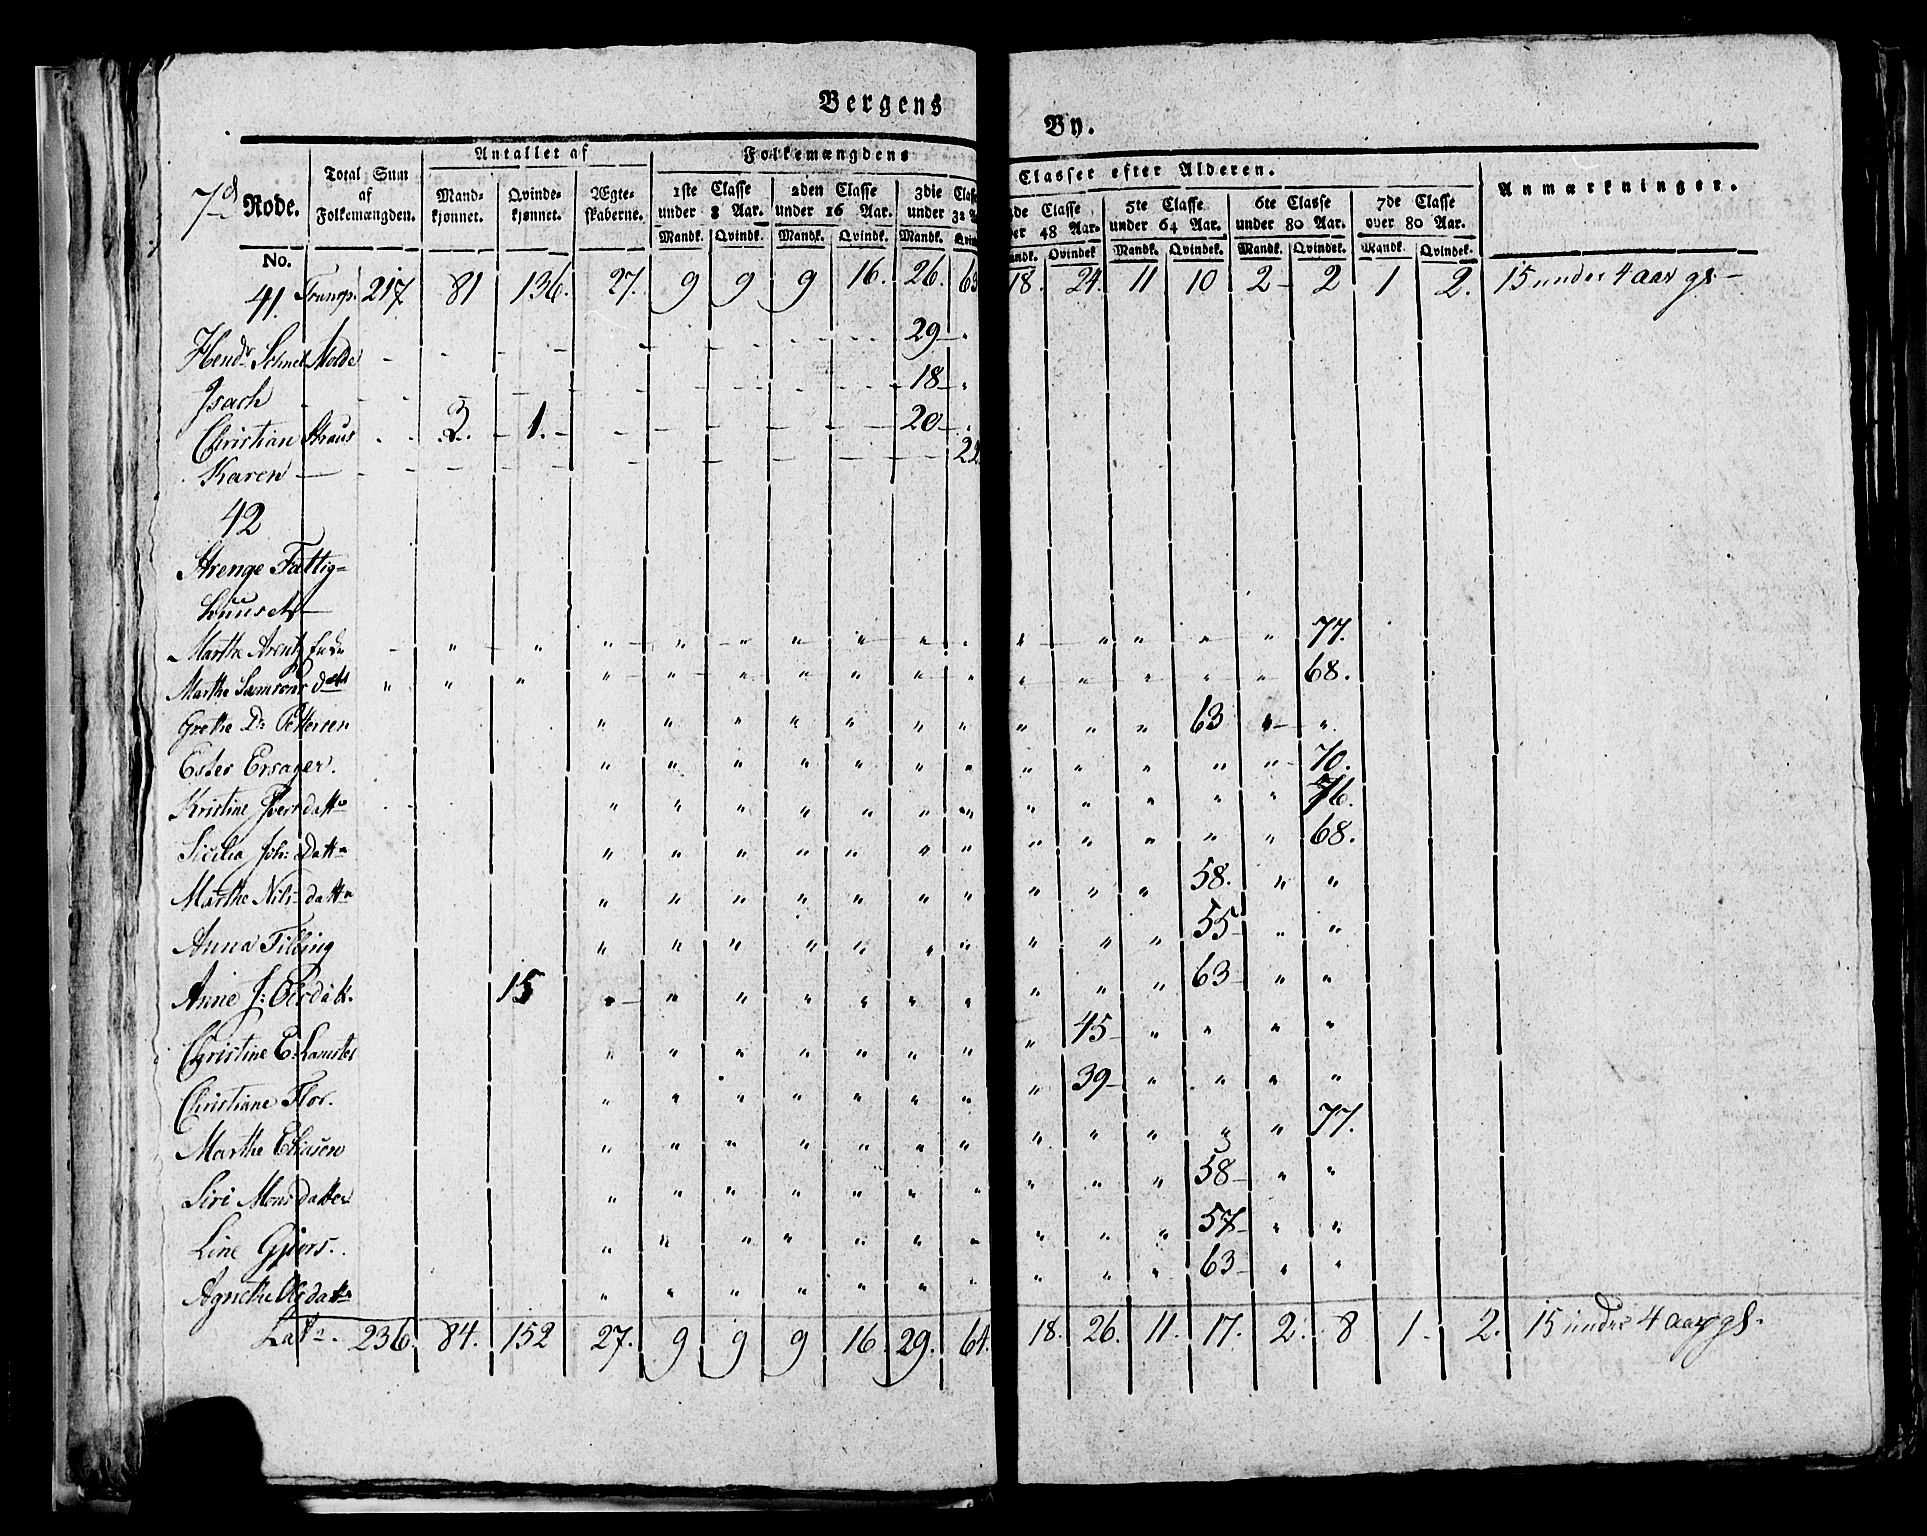 Bergens By.
7de Rode.
Total Sum af Folkemængden.
Antallet af
Mand-kjønnet. Qvinde-kjønnet. Ægte-skaberne.
Folkemængdens Classer efter Alderen.
1ste Classe under 8 Aar. 2den Classe under 16 Aar. 3die Clas under 32 A de Classe er 48 Aar. 5te Classe under 64 Aar. 6te Classe under 80 Aar. 7de Classe over 80 Aar.
Mandk. Qvindk. Mandk. Qvindk. Mandk. Qvin andk. Qvindek Mandk. Qvindek. Mandk. Qvindek. Mandk. Qvindek.
Anmærkninger.
No.
41. Transp. 217 81 136. 27. 9 9 9 16. 26. 63 18. 24. 11 10 2 2 1 2. 15 under 4 aar gl
Hendr Schnel Molde 29
Isach 18
Christian Straus 3. 1. 20
Karen —
42
Strenge Fattig-
huuset
Marthe Arentz 77.
Marthe Samsons datt 68.
Grethe D: Pettersen 63
Ester Ersager. 70.
Kristine Iversdattr 76.
Sicilia Joh: Dattr 68.
Marthe Nilsdattr 58.
Anna Filbing 55
Anne J: Olsdatt. 15 63
Christine E. 45
Christiane Flor. 39
Marthe Eliasen 77.
Siri Monsdatter 58
Line Gjörs. 57
Agnethe Olsdattr 63
Lat. 236. 84. 152 27. 9 9 9 16. 29. 64. 18. 26. 11. 17. 2. 8 1. 2. 15 under 4 aar gl.